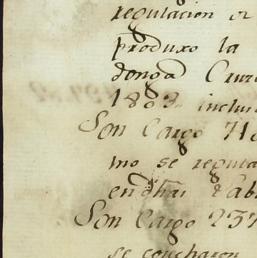 regulacion de
produxo la
donga Cruz
1803 inclu
Son Cargo 718
mo se regula
en dhas Fab
Son Cargo 237
se echaron